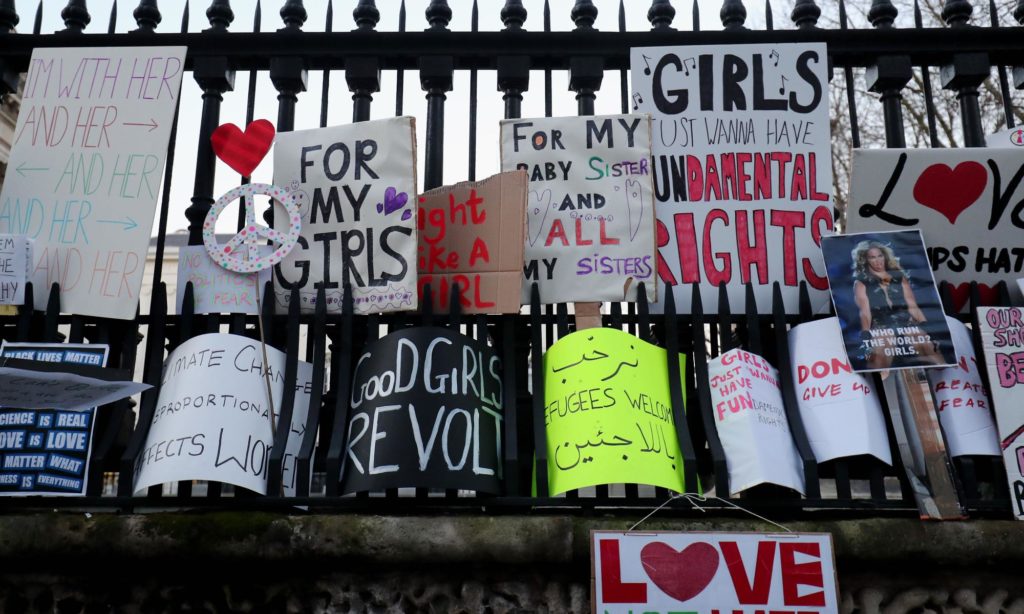 I'M WITH HER
AND HER →
← AND HER
AND HER →
AND HER
FOR
MY
GIRLS
Fight
Like A
GIRL
FOR MY
BABY SISTER
AND
ALL
MY SISTERS
GIRLS
JUST WANNA HAVE
FUNDAMENTAL
RIGHTS
LOVE
HATE
WHO RUN
THE WORLD?
GIRLS.
BLACK LIVES
SCIENCE IS REAL
LOVE IS LOVE
MATTER WHAT
NESS IS EVERYTHING
CLIMATE CHAN
DISPROPORTIONAT
AFFECTS WOMEN
GOOD GIRLS
REVOLT
نرحّب
REFUGEES WELCOME
باللاجئين
GIRLS
JUST WANNA
HAVE
FUNDAMENTAL
RIGHTS
DON'T
GIVE UP
FEAR
OUR
LOVE
NOT HATE